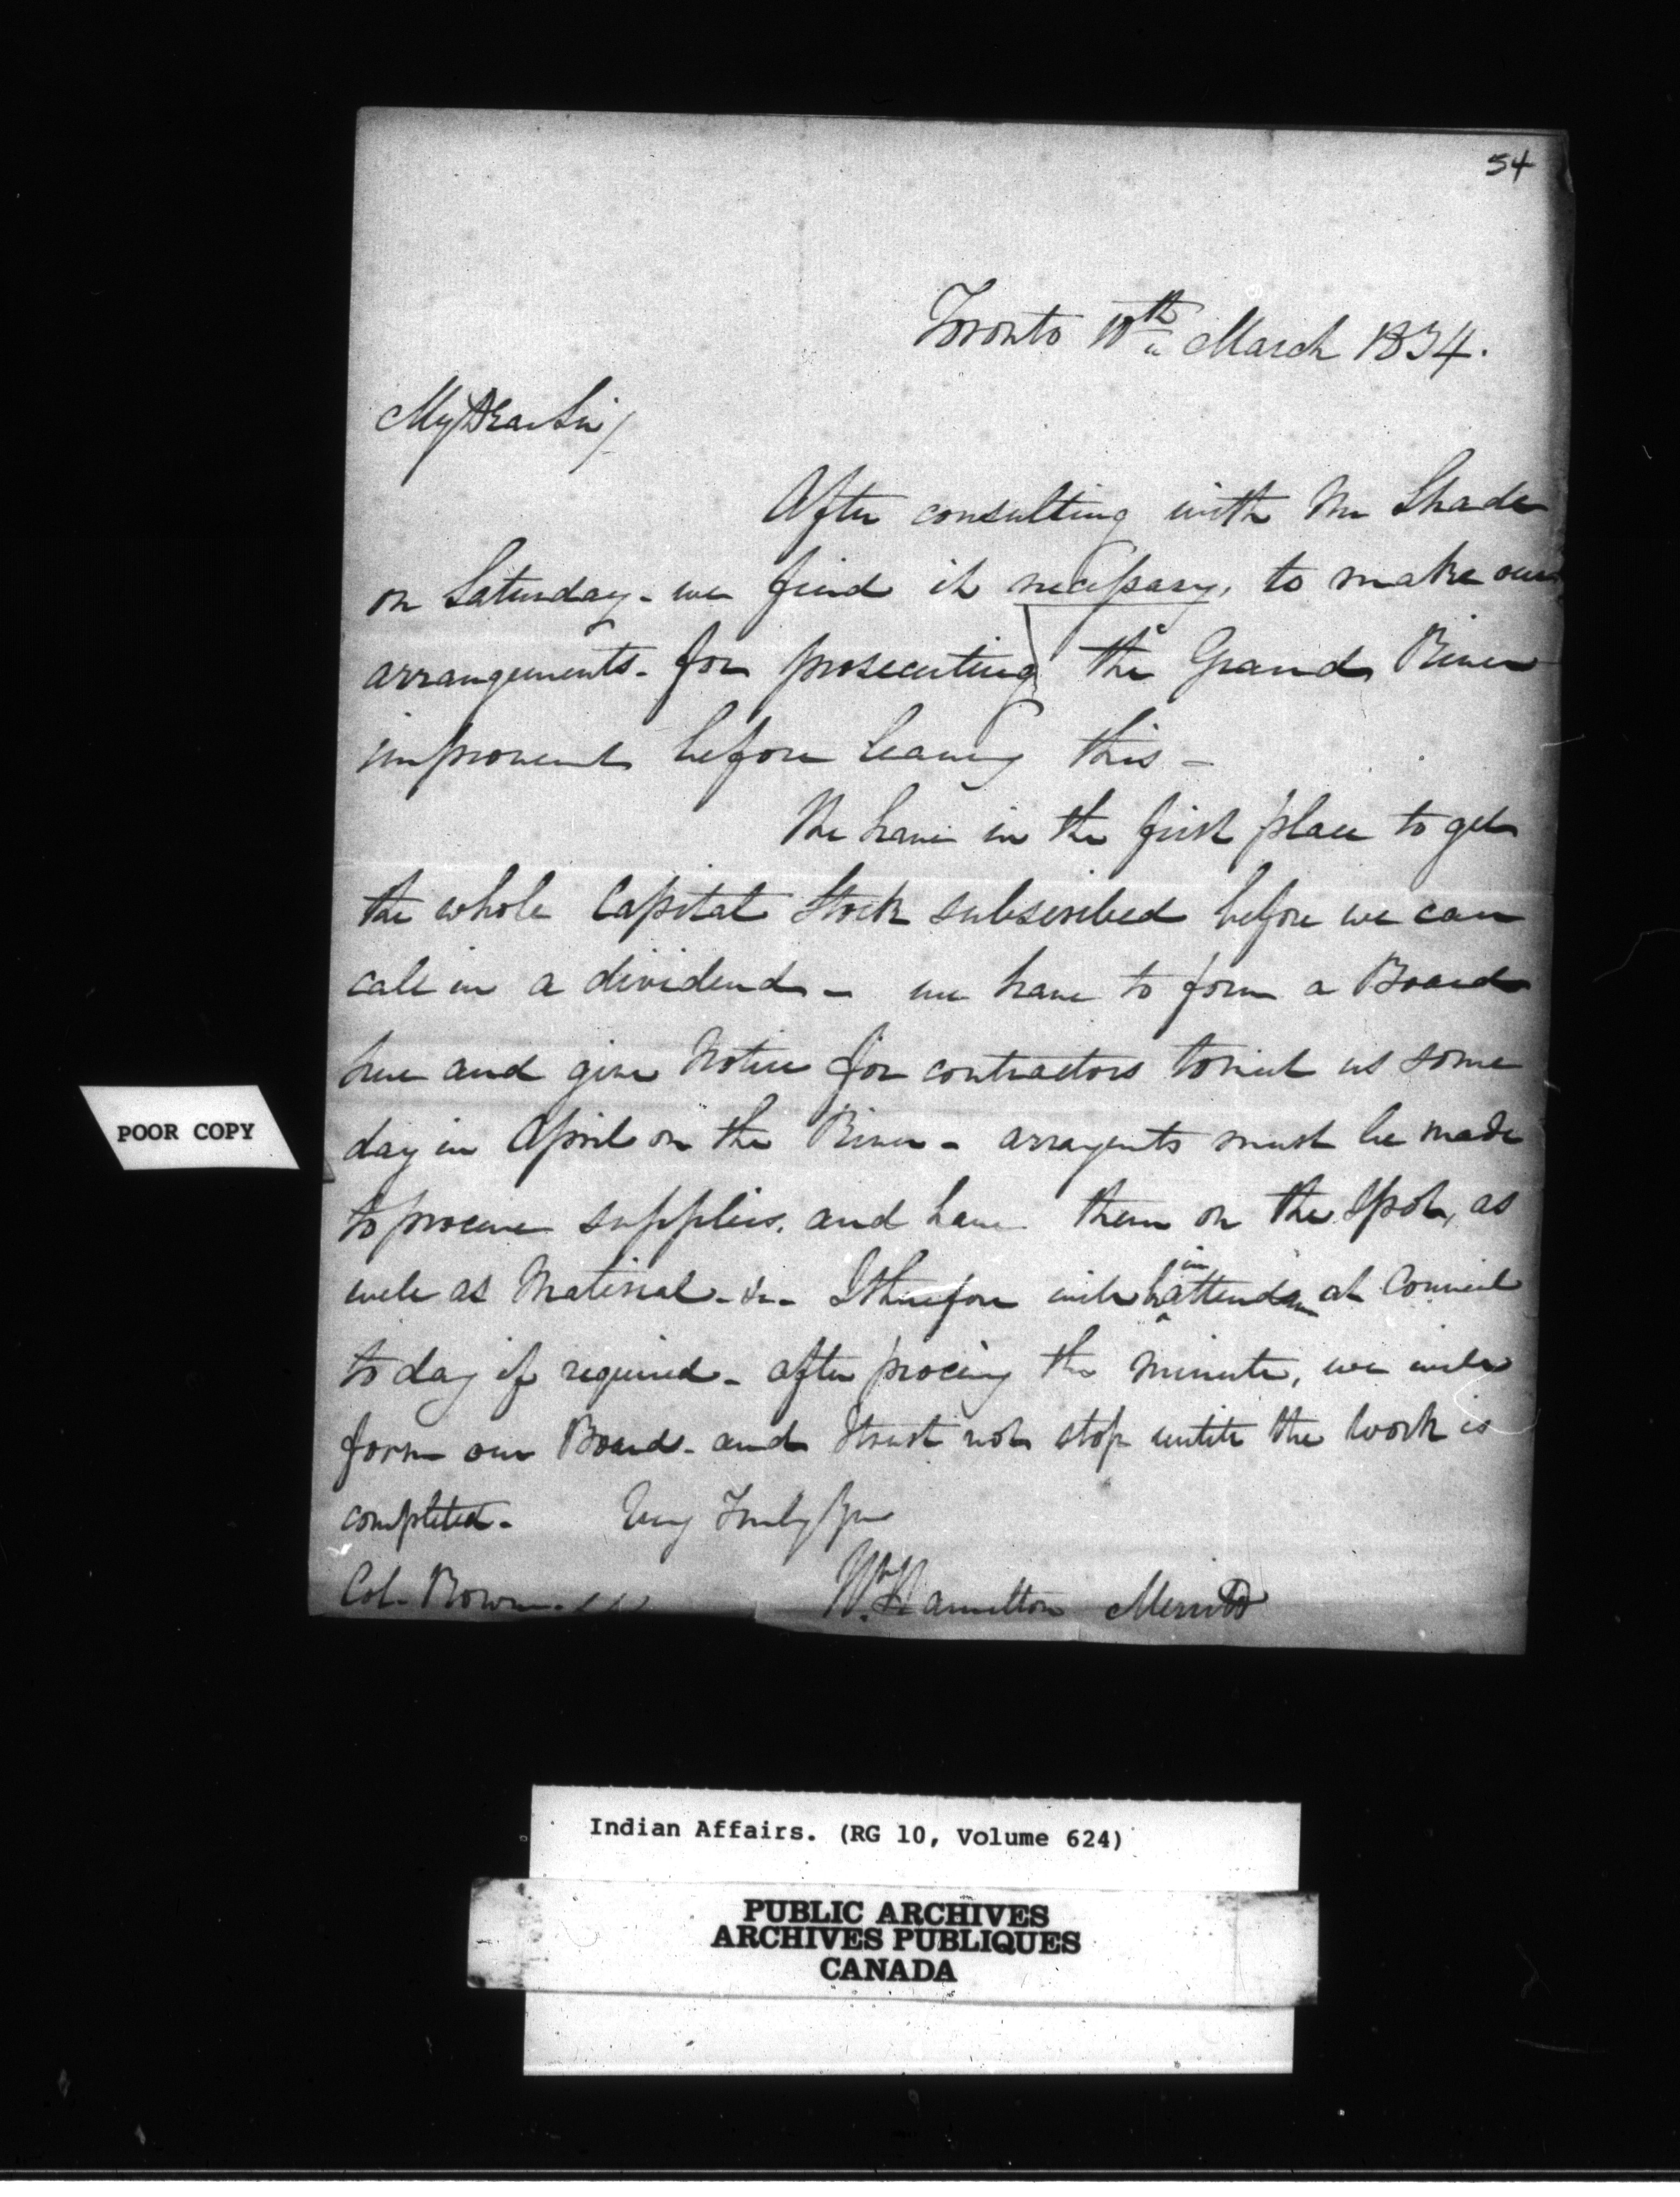 54
Toronto 10th March 1834.
My Dear Sir/
After consulting with Mr Shade
on Saturday - we find it necessary, to make our
arrangements - for prosecuting the Grand River
improvement before leaving this -
We have in the first place to get
the whole Capital Stock subscribed before we can
call in a dividend - we have to form a Board
here and give Notice for contractors to meet us some
day in April on the River - arragents must be made
to procure supplies, and have them on the Spot, as
well as Material - &c - I therefore will be in attendance at Council
to day if required - after procing the minute, we will
form our Board - and I trust not stop untill the work is
completed - Very Truly Yrs
Col. Rowan
Wm Hamilton Merritt
POOR COPY
Indian Affairs. (RG 10, Volume 624)
PUBLIC ARCHIVES
ARCHIVES PUBLIQUES
CANADA